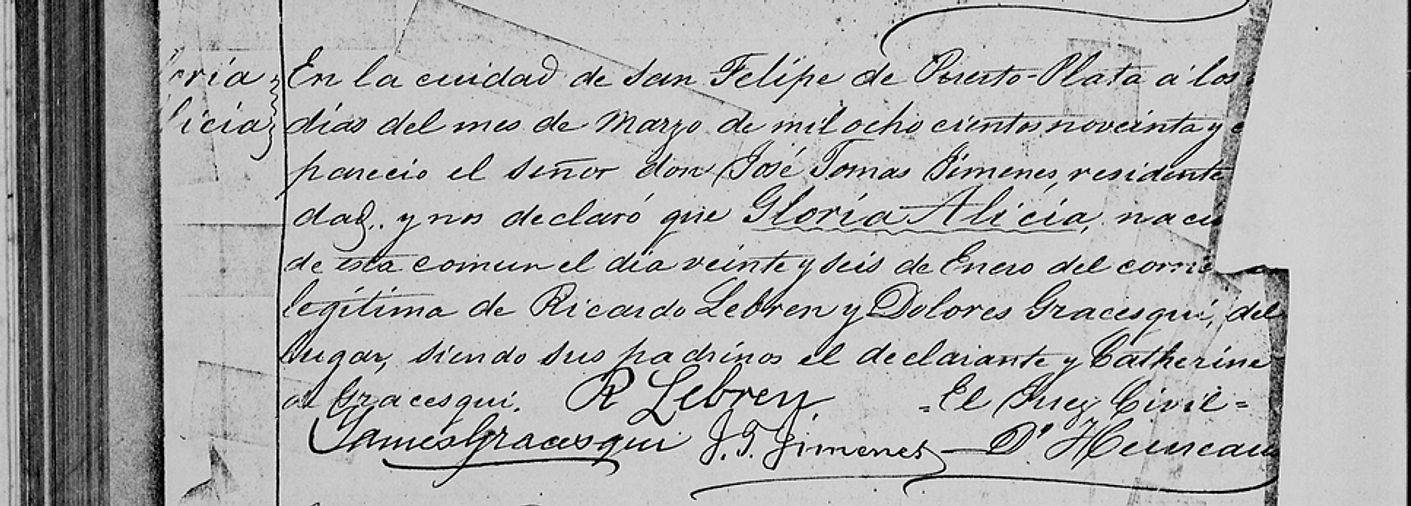 En la cuidad de San Felipe de Puerto-Plata a los
días del mes de Marzo de mil ocho cientos noveinta y
parecio el señor don José Tomas Jimenes, residente
dad, y nos declaró que Gloria Alicia,
de esta comun el día veinte y seis de Enero del
legítima de Ricardo Lebren y Dolores Gracesqui, del
lugar, siendo sus padrinos el declarante y Catherine
Gracesqui. R Lebren. =El Juez Civil=
James Gracesqui J. T. Jimenes